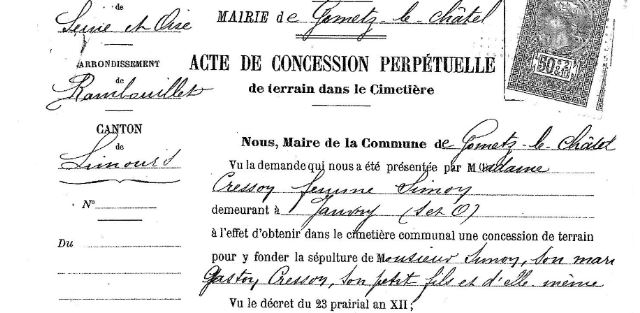 de
Seine et Oise
MAIRIE de Gometz-le-Châtel
50
ARRONDISSEMENT
de
Rambouillet
ACTE DE CONCESSION PERPÉTUELLE
de terrain dans le Cimetière
CANTON
de
Limours
Nous, Maire de la Commune de Gometz-le-Châtel
Vu la demande qui nous a été présentée par Madame
Cressoy femme Simoy
N°
demeurant à Janvry (S et O)
Du
à l'effet d'obtenir dans le cimetière communal une concession de terrain
pour y fonder la sépulture de Monsieur Simoy, son mari
Gaston Cressoy, son petit fils et d'elle même
Vu le décret du 23 prairial an XII;